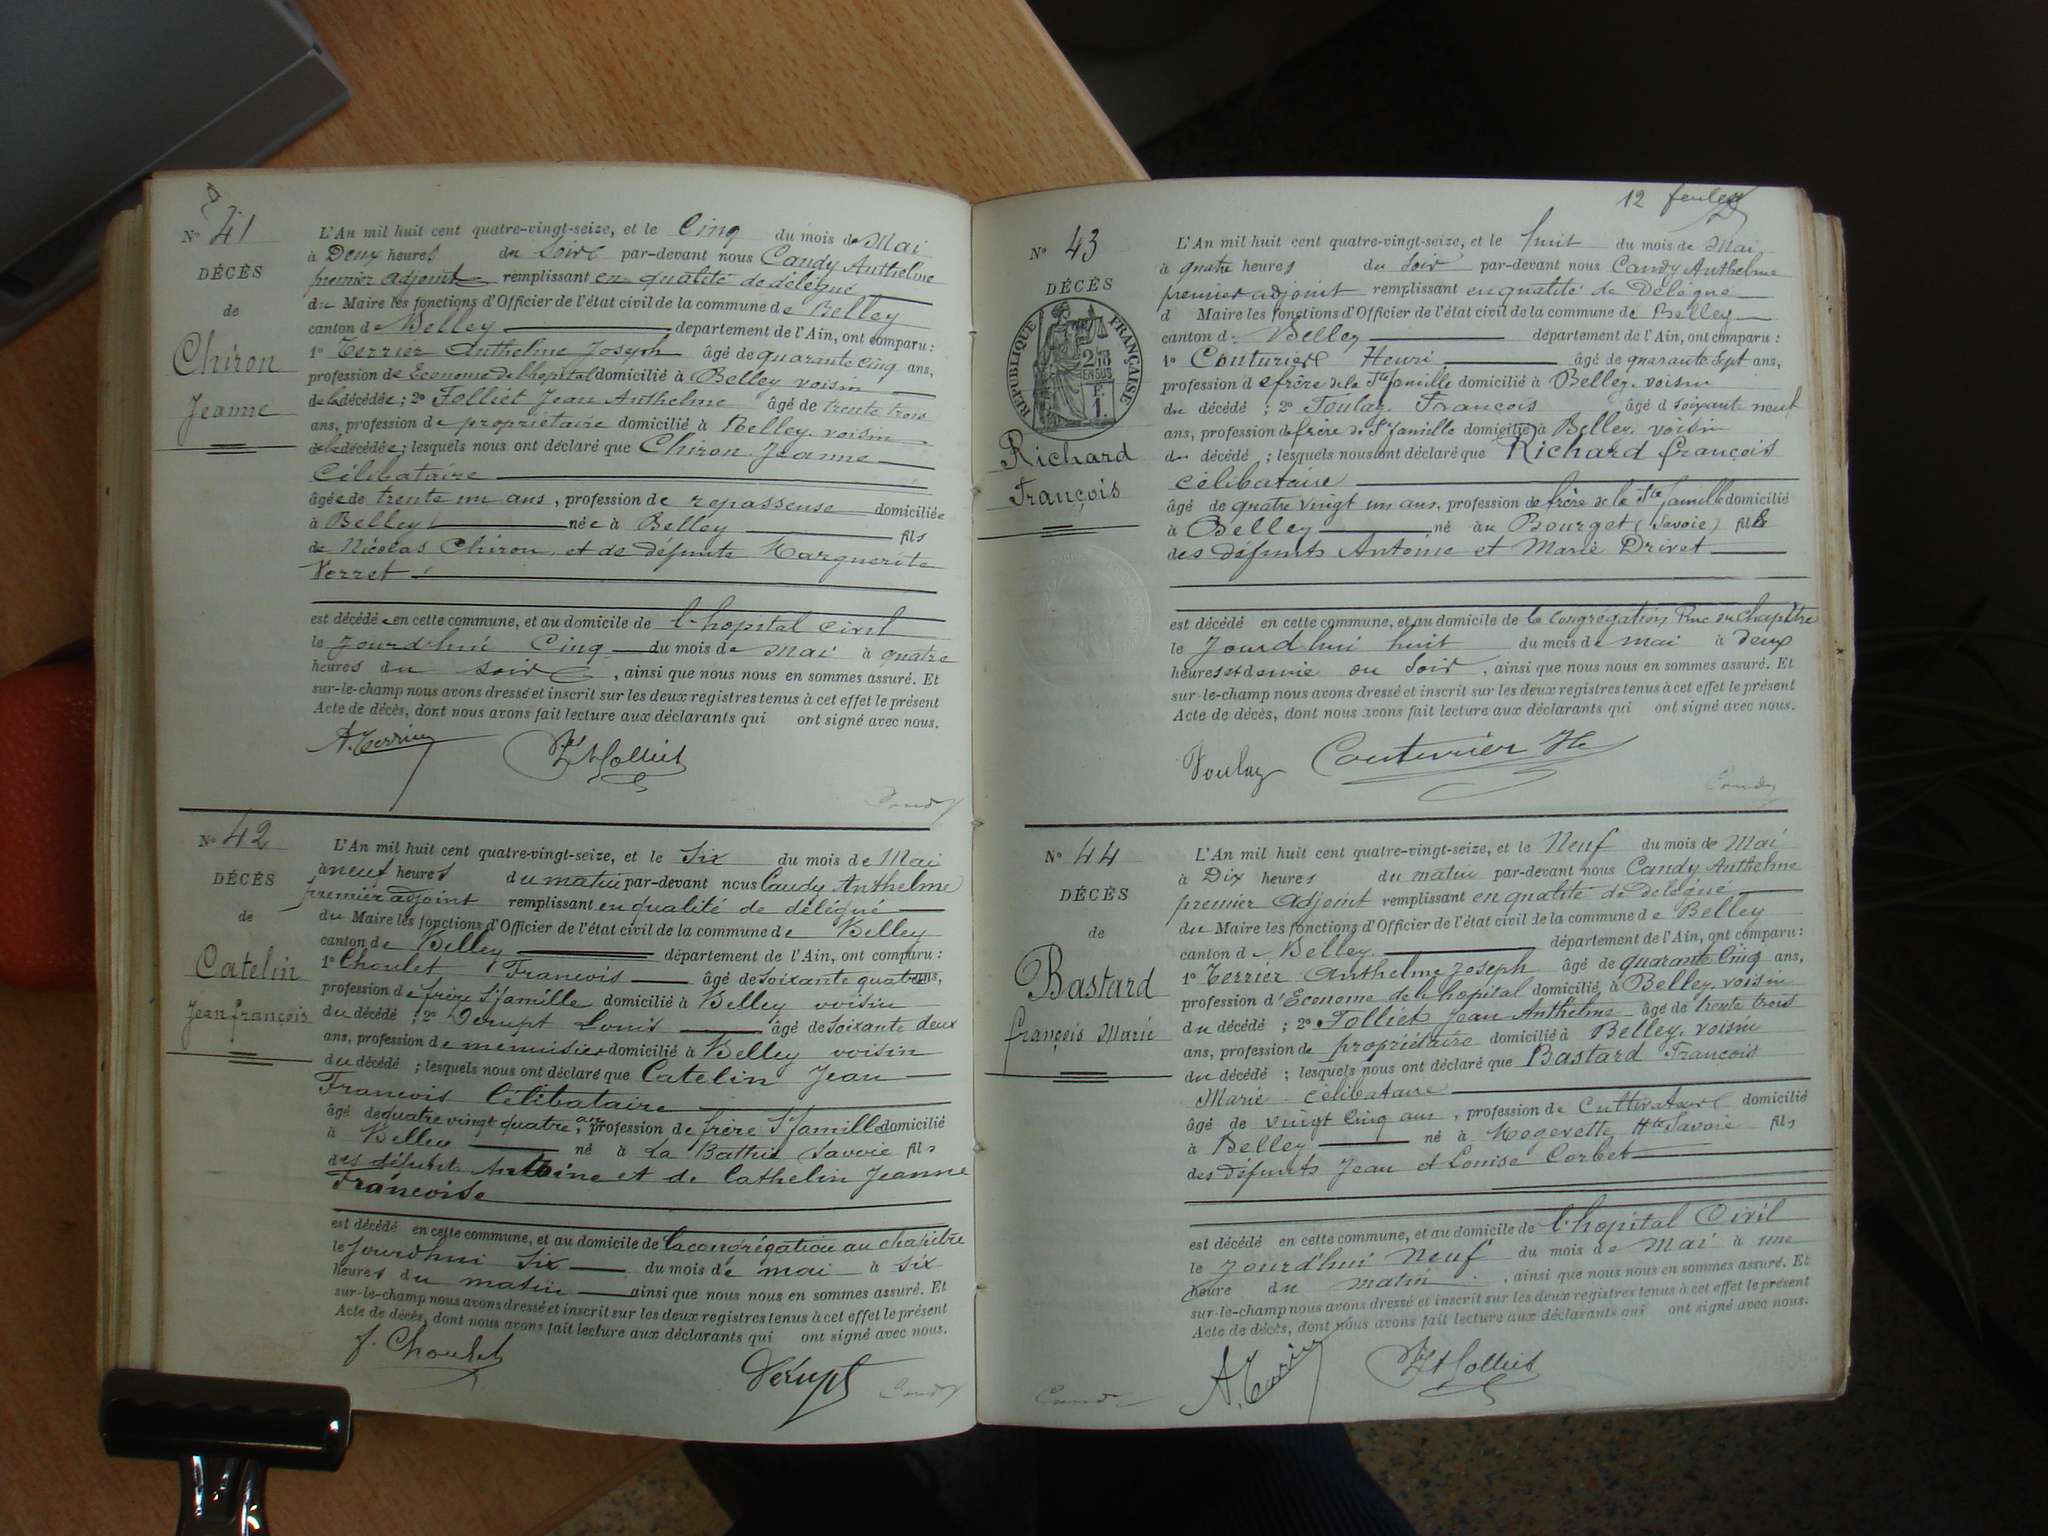 N° 41
DÉCÈS
de
Chiron
Jeanne
L'An mil huit cent quatre-vingt-seize, et le Cinq du mois de Mai
à Deux heures du Soir par-devant nous Candy Anthelme
premier adjoint remplissant en qualité de délégué
du Maire les fonctions d'Officier de l'état civil de la commune de Belley
canton de Belley département de l'Ain, ont comparu :
1° Terrier Anthelme Joseph âgé de quarante cinq ans,
profession de Econome de l'hopital domicilié à Belley voisin
de la décédée ; 2° Folliet Jean Anthelme âgé de trente trois
ans, profession de propriétaire domicilié à Belley. voisin
de la décédée ; lesquels nous ont déclaré que Chiron Jeanne
Célibataire
âgée de trente un ans, profession de repasseuse domiciliée
à Belley née à Belley fils
de Nicolas Chiron et de défunte Marguerite
Verret
est décédée en cette commune, et au domicile de l'hopital civil
le jourd'hui Cinq du mois de Mai à quatre
heures du soir, ainsi que nous nous en sommes assuré. Et
sur-le-champ nous avons dressé et inscrit sur les deux registres tenus à cet effet le présent
Acte de décès, dont nous avons fait lecture aux déclarants qui ont signé avec nous.
A. Terrier Folliet Candy
N° 42
DÉCÈS
de
Catelin
Jean françois
L'An mil huit cent quatre-vingt-seize, et le Six du mois de Mai
à neuf heures du matin par-devant nous Candy Anthelme
premier adjoint remplissant en qualité de délégué
du Maire les fonctions d'Officier de l'état civil de la commune de Belley
canton de Belley département de l'Ain, ont comparu :
1° Choulet François âgé de Soixante quatre ans,
profession de frère Ste famille domicilié à Belley voisin
du décédé ; 2° Derupt Louis âgé de soixante deux
ans, profession de menuisier domicilié à Belley voisin
du décédé ; lesquels nous ont déclaré que Catelin Jean
François Célibataire
âgé de quatre vingt quatre ans, profession de frère Ste famille domicilié
à Belley né à La Bathie Savoie fils
des défunts Antoine et de Cathelin Jeanne
Françoise
est décédé en cette commune, et au domicile de la congrégation au chapitre
le jourd'hui six du mois de mai à six
heures du matin ainsi que nous nous en sommes assuré. Et
sur-le-champ nous avons dressé et inscrit sur les deux registres tenus à cet effet le présent
Acte de décès, dont nous avons fait lecture aux déclarants qui ont signé avec nous.
f. Choulet Derupt Candy
12
N° 43
DÉCÈS
RÉPUBLIQUE FRANÇAISE
Richard
François
L'An mil huit cent quatre-vingt-seize, et le huit du mois de Mai
à quatre heures du soir par-devant nous Candy Anthelme
premier adjoint remplissant en qualité de Délégué
d Maire les fonctions d'Officier de l'état civil de la commune de Belley
canton de Belley département de l'Ain, ont comparu :
1° Couturier Henri âgé de quarante sept ans,
profession de frère de la Ste famille domicilié à Belley. voisin
du décédé ; 2° Toulaz François âgé d soixante neuf
ans, profession de frère de Ste famille domicilié à Belley. voisin
du décédé ; lesquels nous ont déclaré que Richard françois
célibataire
âgé de quatre vingt un ans, profession de frère de la Ste famille domicilié
à Belley né au Bourget (Savoie) fils
des défunts Antoine et Marie Drivet
est décédé en cette commune, et au domicile de la congrégation Rue du chapitre
le jourd'hui huit du mois de mai à deux
heures et demie du soir, ainsi que nous nous en sommes assuré. Et
sur-le-champ nous avons dressé et inscrit sur les deux registres tenus à cet effet le présent
Acte de décès, dont nous avons fait lecture aux déclarants qui ont signé avec nous.
Toulaz Couturier He Candy
N° 44
DÉCÈS
de
Bastard
françois Marie
L'An mil huit cent quatre-vingt-seize, et le Neuf du mois de Mai
à Dix heures du matin par-devant nous Candy Anthelme
premier Adjoint remplissant en qualité de délégué
du Maire les fonctions d'Officier de l'état civil de la commune de Belley
canton de Belley département de l'Ain, ont comparu :
1° Terrier Anthelme Joseph âgé de quarante cinq ans,
profession d'Econome de l'hopital domicilié à Belley. voisin
du décédé ; 2° Folliet Jean Anthelme âgé de trente trois
ans, profession de propriétaire domicilié à Belley. voisin
du décédé ; lesquels nous ont déclaré que Bastard François
Marie célibataire
âgé de vingt cinq ans, profession de Cultivateur domicilié
à Belley né à Mégevette Hte Savoie fils
des défunts Jean et Louise Corbet
est décédé en cette commune, et au domicile de l'hopital Civil
le jourd'hui neuf du mois de Mai à une
heure du matin, ainsi que nous nous en sommes assuré. Et
sur-le-champ nous avons dressé et inscrit sur les deux registres tenus à cet effet le présent
Acte de décès, dont nous avons fait lecture aux déclarants qui ont signé avec nous.
Candy A. Terrier Folliet